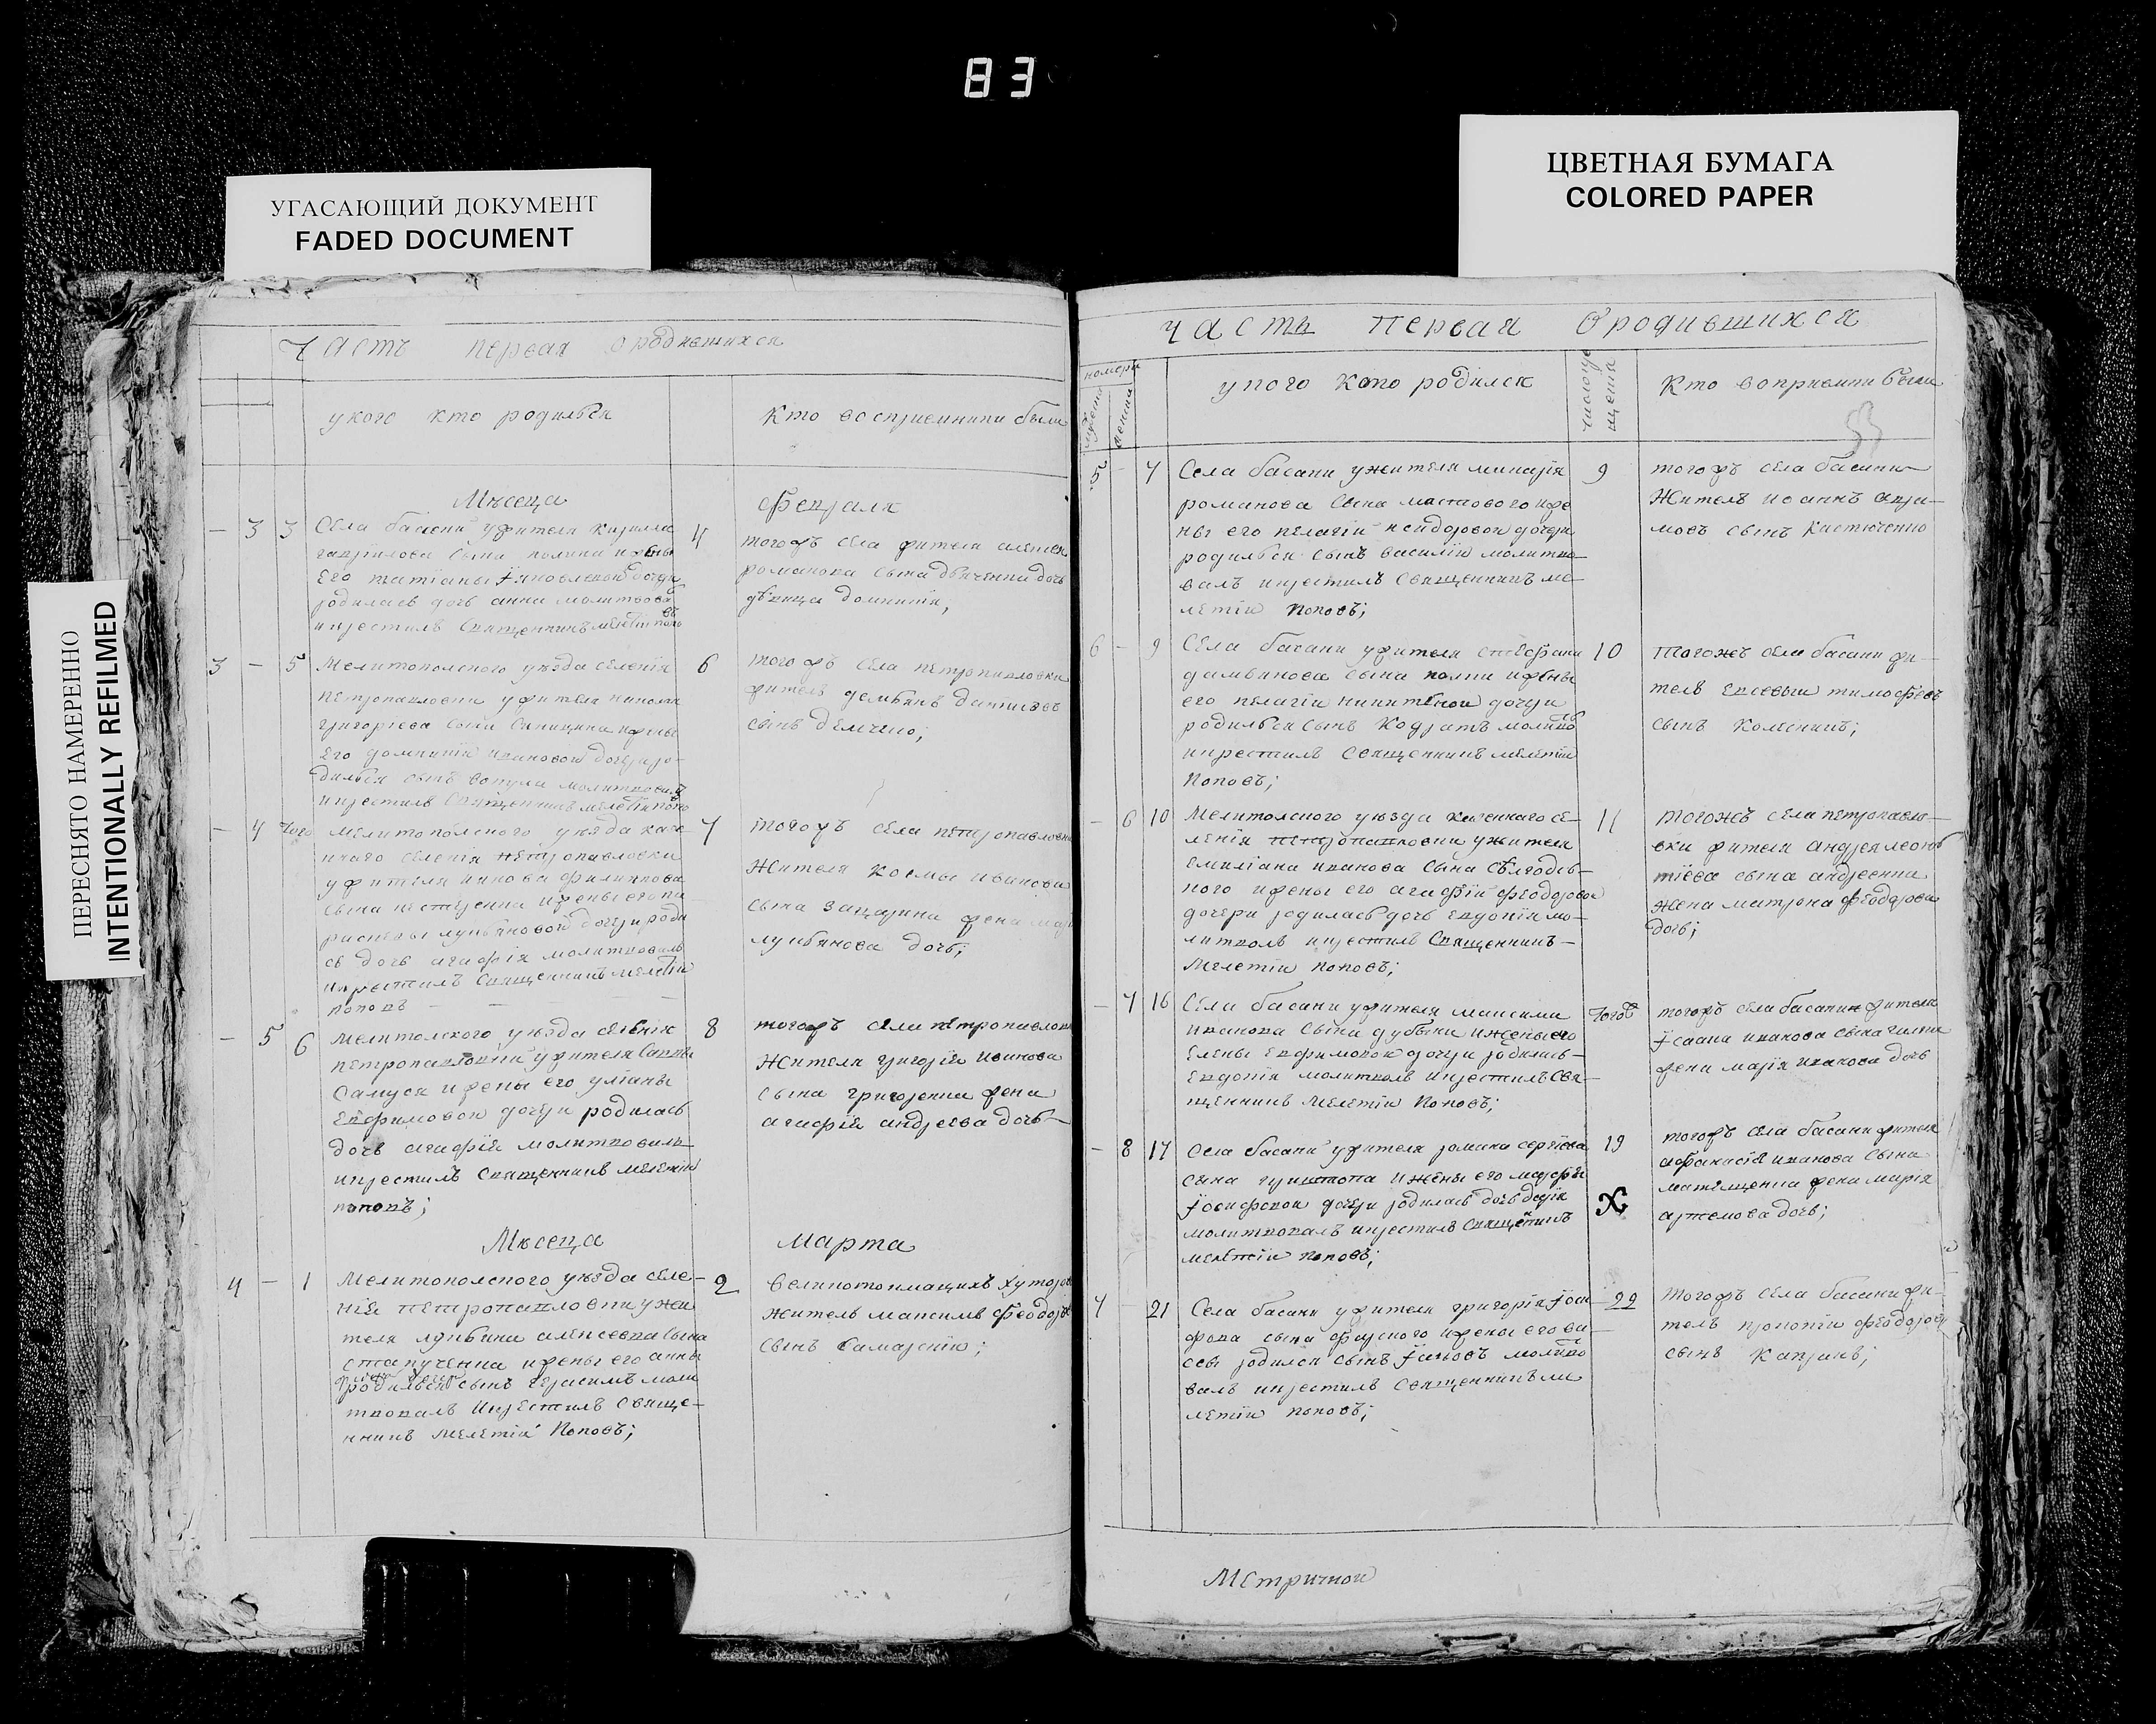 83
УГАСАЮЩИЙ ДОКУМЕНТ
FADED DOCUMENT
ЦВЕТНАЯ БУМАГА
COLORED PAPER
ПЕРЕСНЯТО НАМЕРЕННО
INTENTIONALLY REFILMED
Часть первая ородившихся
укого кто родился
Кто восприемники были
Мѣсеца
февраля
3 3 Села басани ужителя кирилла
гаврилова сына
Его татіаны яковлевой дочери
родилась дочь анна молитвова
икрестилъ Священникъ мелетій попо
въ
4
тогожъ села жителя алексея
романова сына дочь
дѣвица домникія,
3 5 Мелитополского уезда селенія
петропавловки ужителя николая
григорієва сына ижены
Его домникіи ивановой дочери ро-
дился сынъ вокула молитвовалъ
икрестилъ Священникъ мелетій попо
6
тогожъ села петропавловки
житель демьянъ даниловъ
сынъ демченко;
4 того мелитополского уезда казе
ннаго селенія петропавловки
ужителя иякова филиппова
сына нестеренка ижены его па
раскевы лукьяновой дочери роди
сь дочь агафія молитвовалъ
икрестилъ Священникъ мелетій
поповъ
7
тогожъ села петропавловки
Жителя космы иванова
сына жена
лукьянова дочь;
5 6 мелитопского уезда селенія
петропавловки ужителя саввы
самуся ижены его уліаны
Евфимовой дочери родилась
дочь агафія молитвовалъ
икрестилъ Священникъ мелетій
поповъ;
8
тогожъ села петропавловки
Жителя григорія иванова
сына григоренка жена
агафія андреева дочь
Мѣсеца
марта
4 1 Мелитополского уезда селе-
нія петропавловки ужи
теля лукьяна алексеева сына
ижены его анны
родился сынъ герасимъ моли
твовалъ икрестилъ Свяще-
нникъ мелетій Поповъ;
2
хуторовъ
житель максимъ феодоровъ
сынъ Самарскій;
часть первая ородившихся
номера
укого кто родился
число кре
щенія
Кто воприемники были
53
5 7 Села басани ужителя
романова сына мастового ижe
ны его пелагіи исидоровой дочери
родился сынъ василій молитво
валъ икрестилъ Священникъ ме-
летій поповъ;
9
тогожъ села басани
Житель иоаннъ
мовъ сынъ Костюченко
6 9 Села басани ужителя стефана
демьянова сына ижены
его пелагіи никитиной дочери
родился сынъ Кодратъ молитво
икрестилъ Священникъ мелетій
Поповъ;
10
тогожъ села басани жи-
тель Евсевый тимофеевъ
сынъ Колесникъ;
6 10 Мелитополсного уезда казеннаго се-
ленія петропавловки ужителя
емиліана иванова сына
ного ижены его агафіи феодоровой
дочери родилась дочь Евдокія мо-
литвовалъ икрестилъ Священникъ
Мелетій поповъ;
11
тогожъ села петропавло-
вки жителя андрея леон
тіева сына андреенка
жена матрона феодорова
дочь;
7 16 Села басани ужителя максима
иванова сына ижены его
Елены Евфимовой дочери родилась
Евдокія молитвовалъ икрестилъ Свя
щенникъ Мелетій Поповъ;
тогожъ
тогожъ села басани жителя
иванова сына
жена марія иванова дочь
8 17 Села басани ужителя романа сергіева
сына ижены его марфы
іосифовой дочери родилась дочь дарія
молитвовалъ икрестилъ Священникъ
мелетій поповъ;
19
X
тогожъ села басани жителя
афанасія иванова сына
жена марія
артемова дочь;
7 21 Села басани ужителя григорія іоси
фова сына ижены его ва
ссы родился сынъ яковъ молитво
валъ икрестилъ Священникъ ме
летій поповъ;
22
тогожъ села басани жи-
тель прокопій феодоровъ
сынъ
Метричной